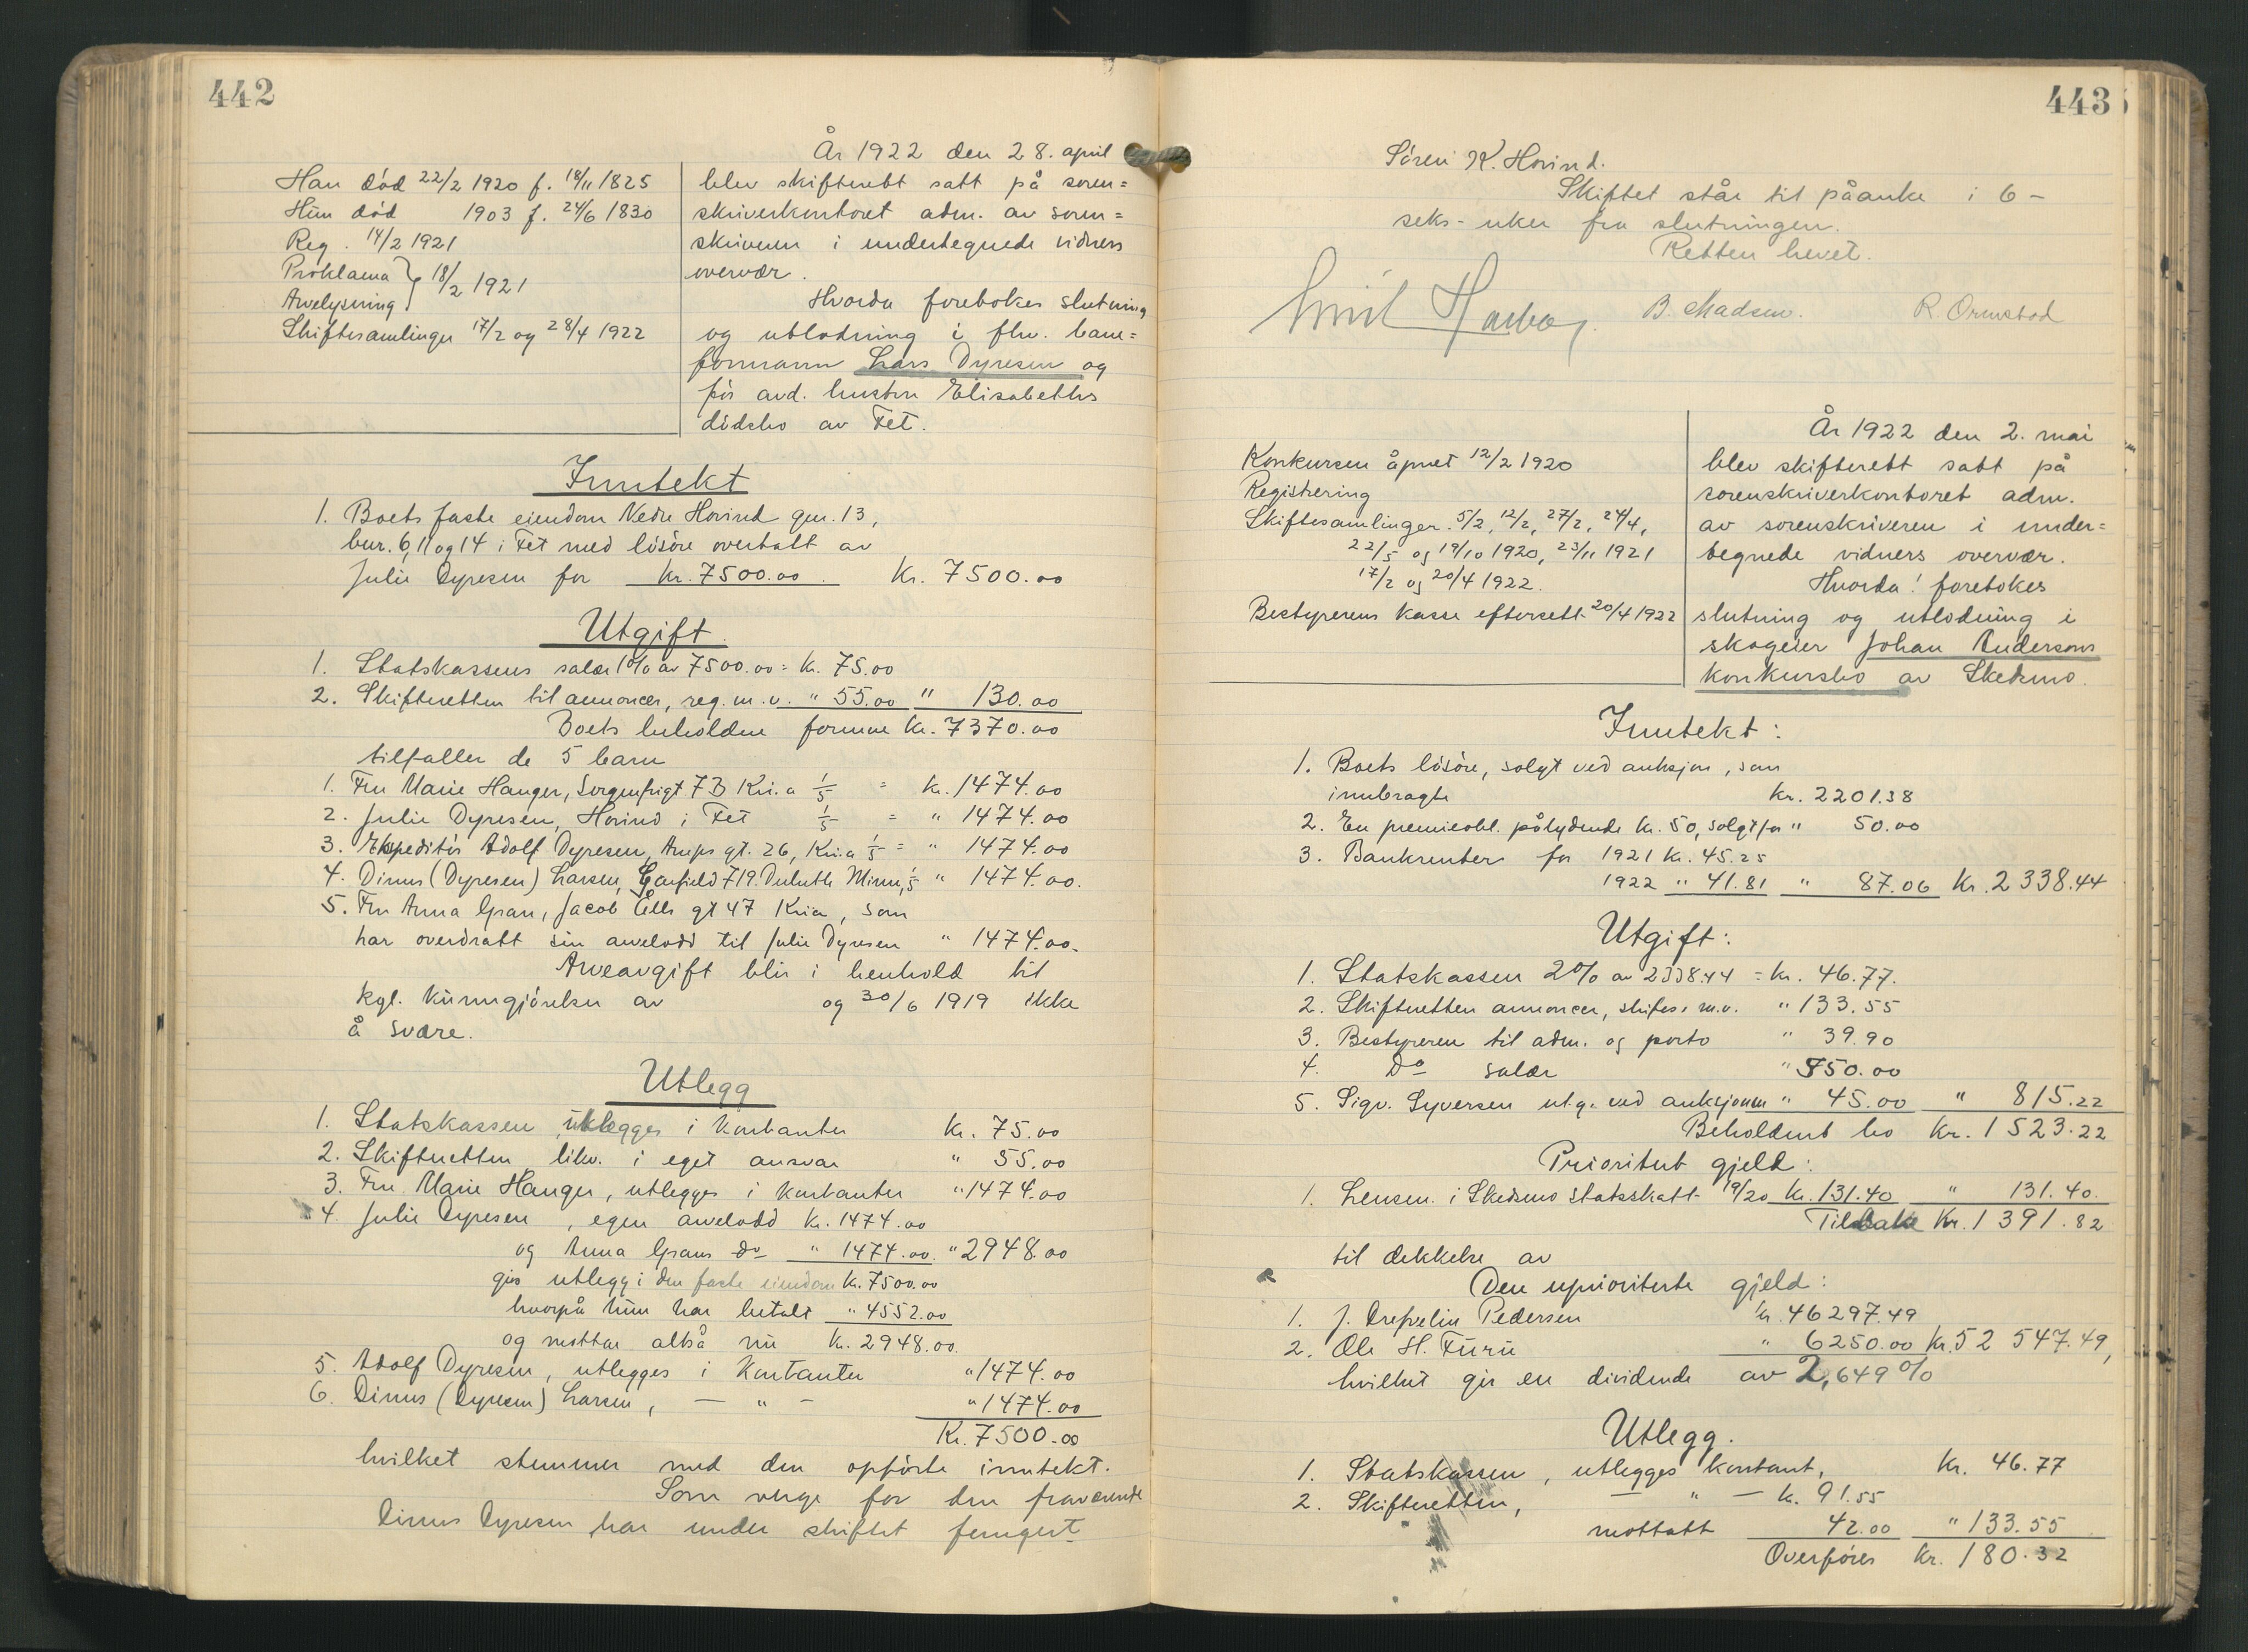 442
År 1922 den 28. april
Han död 22/2 1920 f. 18/11 1825
Hun död 1903 f. 24/6 1830
Reg. 14/2 1921
Proklama } 18/2 1921
Arvelysning
Skiftesamlinger 17/2 og 28/4 1922
blev skifterett satt på soren=
skriverkontoret adm. av soren=
skriveren i undertegnede vidners
overvær.
Hvorda foretokes slutning
og utlodning i fhv. bane=
formann Lars Dyresen og
för avd. hustru Elisabeths
dödsbo av Fet.
Inntekt
1. Boets faste eiendom Nedre Hovind gnr. 13,
bnr. 6, 11 og 14 i Fet med lösöre overtatt av
Julie Dyresen for kr. 7500.00. Kr. 7500.00
Utgift.
1. Statskassens salær 1% av 7500.00 = Kr. 75.00
2. Skifteretten til annoncer, reg. m.v. " 55.00 " 130.00
Boets beholdne formue Kr. 7370.00
tilfaller de 5 barn
1. Fru Marie Hanger, Sorgenfrigt. 7B Kri.a 1/5 = kr. 1474.00
2. Julie Dyresen, Hovind i Fet 1/5 = " 1474.00
3. Ekspeditör Adolf Dyresen, Amps gt. 26, Kri.a 1/5 = " 1474.00
4. Dinus (Dyresen) Larsen, Garfield 719. Duluth Minn, 1/5 " 1474.00.
5. Fru Anna Gran, Jacob Ålls gt 47 Kria, som
har overdratt sin arvelodd til Julie Dyresen " 1474.00.
Arveavgift blir i henhold til
kgl. kunngjörelser av og 30/6 1919 ikke
å svare.
Utlegg
1. Statskassen, utlegges i kontanter Kr. 75.00
2. Skifteretten likv. i eget ansvar " 55.00
3. Fru Marie Hanger, utlegges i kontanter " 1474.00
4. Julie Dyresen, egen arvelodd Kr. 1474.00
og Anna Grans do " 1474.00. " 2948.00
gis utlegg i den faste eiendom Kr. 7500.00
hvorpå hun har betalt " 4552.00
og mottar altså nu Kr. 2948.00.
5. Adolf Dyresen, utlegges i kontanter " 1474.00
6. Dinus (Dyresen) Larsen, — " — " 1474.00
Kr. 7500.00
hvilket stemmer med den opförte inntekt.
Som verge for den fraværende
Dinus Dyresen har under skiftet fungert
443
Sören K. Hovind.
Skiftet står til påanke i 6 -
seks - uker fra slutningen.
Retten hevet.
B. Madsen. R. Ormstad
År 1922 den 2. mai
Konkursen åpnet 12/2 1920
Registrering
Skiftesamlinger. 5/2, 12/2, 27/2, 24/4,
22/5 og 19/10 1920, 23/11 1921
17/2 og 20/4 1922.
Bestyrerens kasse eftersett 20/4 1922
blev skifterett satt på
sorenskriverkontoret adm.
av sorenskriveren i under=
tegnede vidners overvær.
Hvorda! foretokes
slutning og utlodning i
skogeier Johan Andersons
konkursbo av Skedsmo.
Inntekt:
1. Boets lösöre, solgt ved auksjon, som
innbragte kr. 2201.38
2. En premieobl. pålydende kr. 50, solgt for " 50.00
3. Bankrenter for 1921 kr. 45.25
1922 " 41.81 " 87.06 Kr. 2338.44
Utgift:
1. Statskassen 2% av 2338.44 = kr. 46.77.
2. Skifteretten annoncer, skifes. m.v. " 133.55
3. Bestyreren til adm. og porto " 39.90
4. Do salær " 550.00
5. Sigv. Syversen utg. ved auksjonen " 45.00 " 815.22
Beholdent bo Kr. 1523.22
Prioritert gjeld:
1. Lensm. i Skedsmo statsskatt 19/20 Kr. 131.40 " 131.40.
Tilbake Kr. 1391.82
til dekkelse av
Den uprioriterte gjeld:
1. J. Pedersen kr. 46297.49
2. Ole H. Furu " 6250.00 Kr. 52 547.49,
hvilket gir en dividende av 2,649%
Utlegg.
1. Statskassen, utlegges kontant, Kr. 46.77
2. Skifteretten, — " — kr. 91.55
mottatt 42.00 " 133.55
Overföres Kr. 180.32